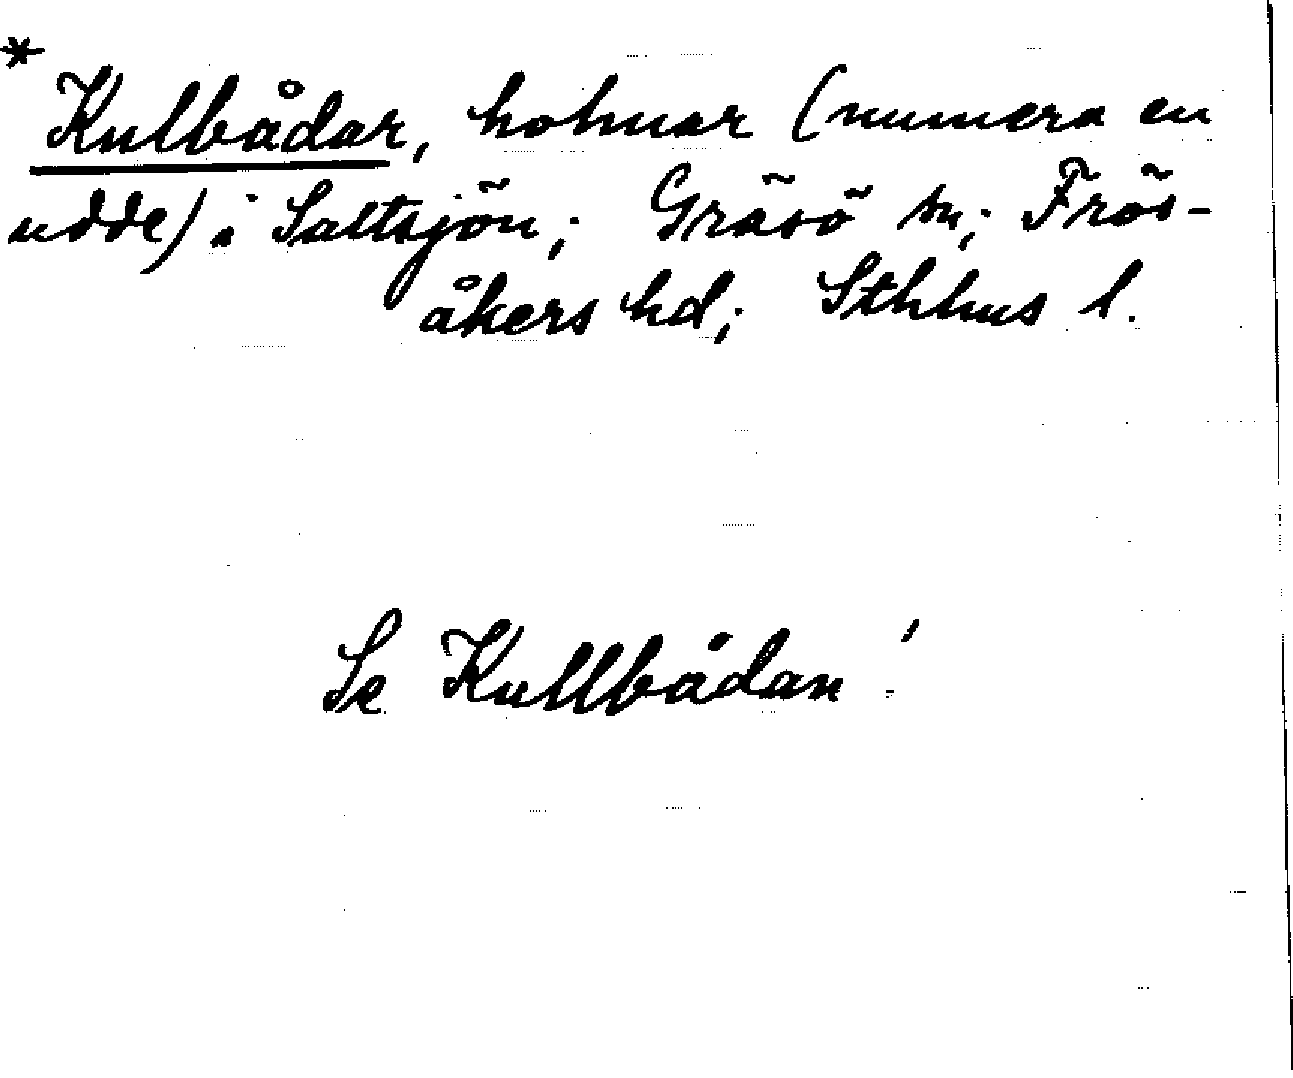 * Kulbådar, holmar (numera en
udde) i Saltsjön; Gräsö sn; Frös-
åkers hd; Sthlms l.
Se Kullbådan!